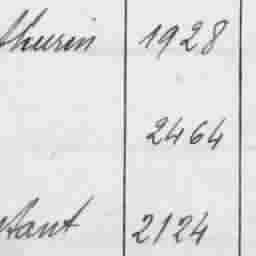 thurin 1928
2464
tant 2124